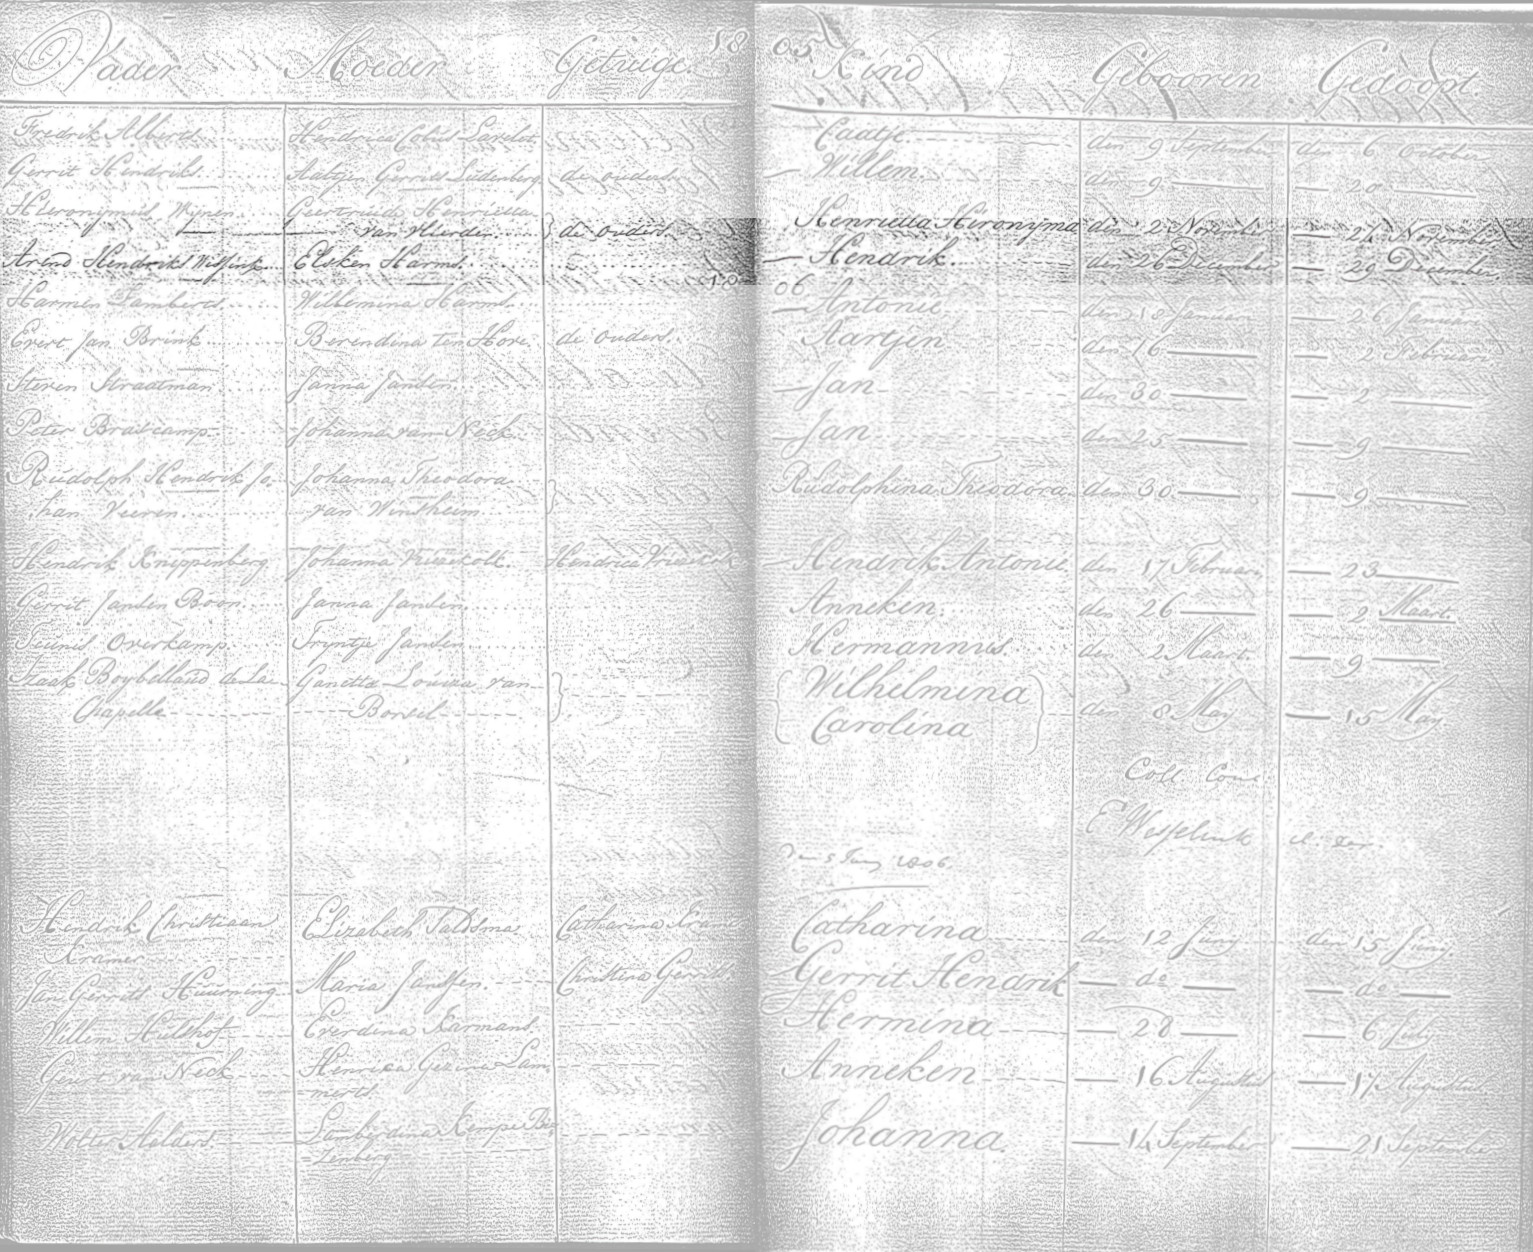 Vader Moeder Getuige. 1805 Kind Gebooren Gedoopt.
Fredrik Alberts Hendrica Cobus Caatje den 9 September den 6 October
Gerrit Hendriks Aaltjen Gerrits de ouders. Willem den 9 — 20
Hieronymus Wijnen Geertruida Henrietta
van Vleerden de ouders. Henrietta Hieronyma den 2 November — 24 November
Arend Hendriks Wissink Elsken Harms. Hendrik. den 26 December — 29 December,
1806
Harmen Lamberts. Willemina Harms. Antonie den 18 Januari — 26 Januari
Evert Jan Brink Berendina ten Hove. de ouders. Aartjen den 16 — 2 Februari
Steven Straatman Janna Jansen Jan den 30 — 2
Peter Johanna van Neck Jan den 25 — 9
Rudolph Hendrik Jo- Johanna Theodora Rudolphina Theodora den 30 — 9
han van Wintheim
Hendrik Knippenberg Johanna Hendrica Hendrik Antonie den 17 Februari — 23
Gerrit Jansen Boon Janna Jansen Anneken den 26 — 2 Maart.
Teunis Overkamp Tryntje Jansen Hermannus den 2 Maart. — 9
Isaak de La Louisa van Wilhelmina
Chapelle Borsel Carolina den 8 May — 15 May
Coll. Conc.
E Wesselink
den 5 Juny 1806
Hendrik Christiaan Elizabeth Taldsma Catharina Catharina den 12 Juny den 15 Juny
Kramer
Jan Gerrits Huurning Maria Janssen. Christina Gerrits Gerrit Hendrik — do — do
Willem Hulshof Everdina Harmans. Hermina — 28 — 6 July
Geurt van Neck Henrica Gesina Lam Anneken — 16 Augustus — 17 Augustus
=merts
Wolter Aelders. Lamberdina Kempe Johanna. — 14 September — 21 September
=zenberg